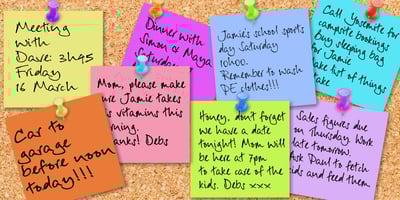 Meeting
with
Dave 3h45
Friday
16 March
Dinner with
Simon & Maya
Saturday
Jamie's school sports
day Saturday
10h00.
Remember to wash
PE clothes!!!
Call Yosemite for
campsite bookings
buy sleeping bag
for Jamie
list of things
take
Car to
garage
before noon
today!!!
Mom, please make
Jamie takes
vitamins this
Debs
Honey, don't forget
we have a date
tonight! Mom will
be here at 7pm
to take care of the
kids. Debs xxx
Sales figures due
on Thursday. Work
late tomorrow.
Ask Paul to fetch
kids and feed them.